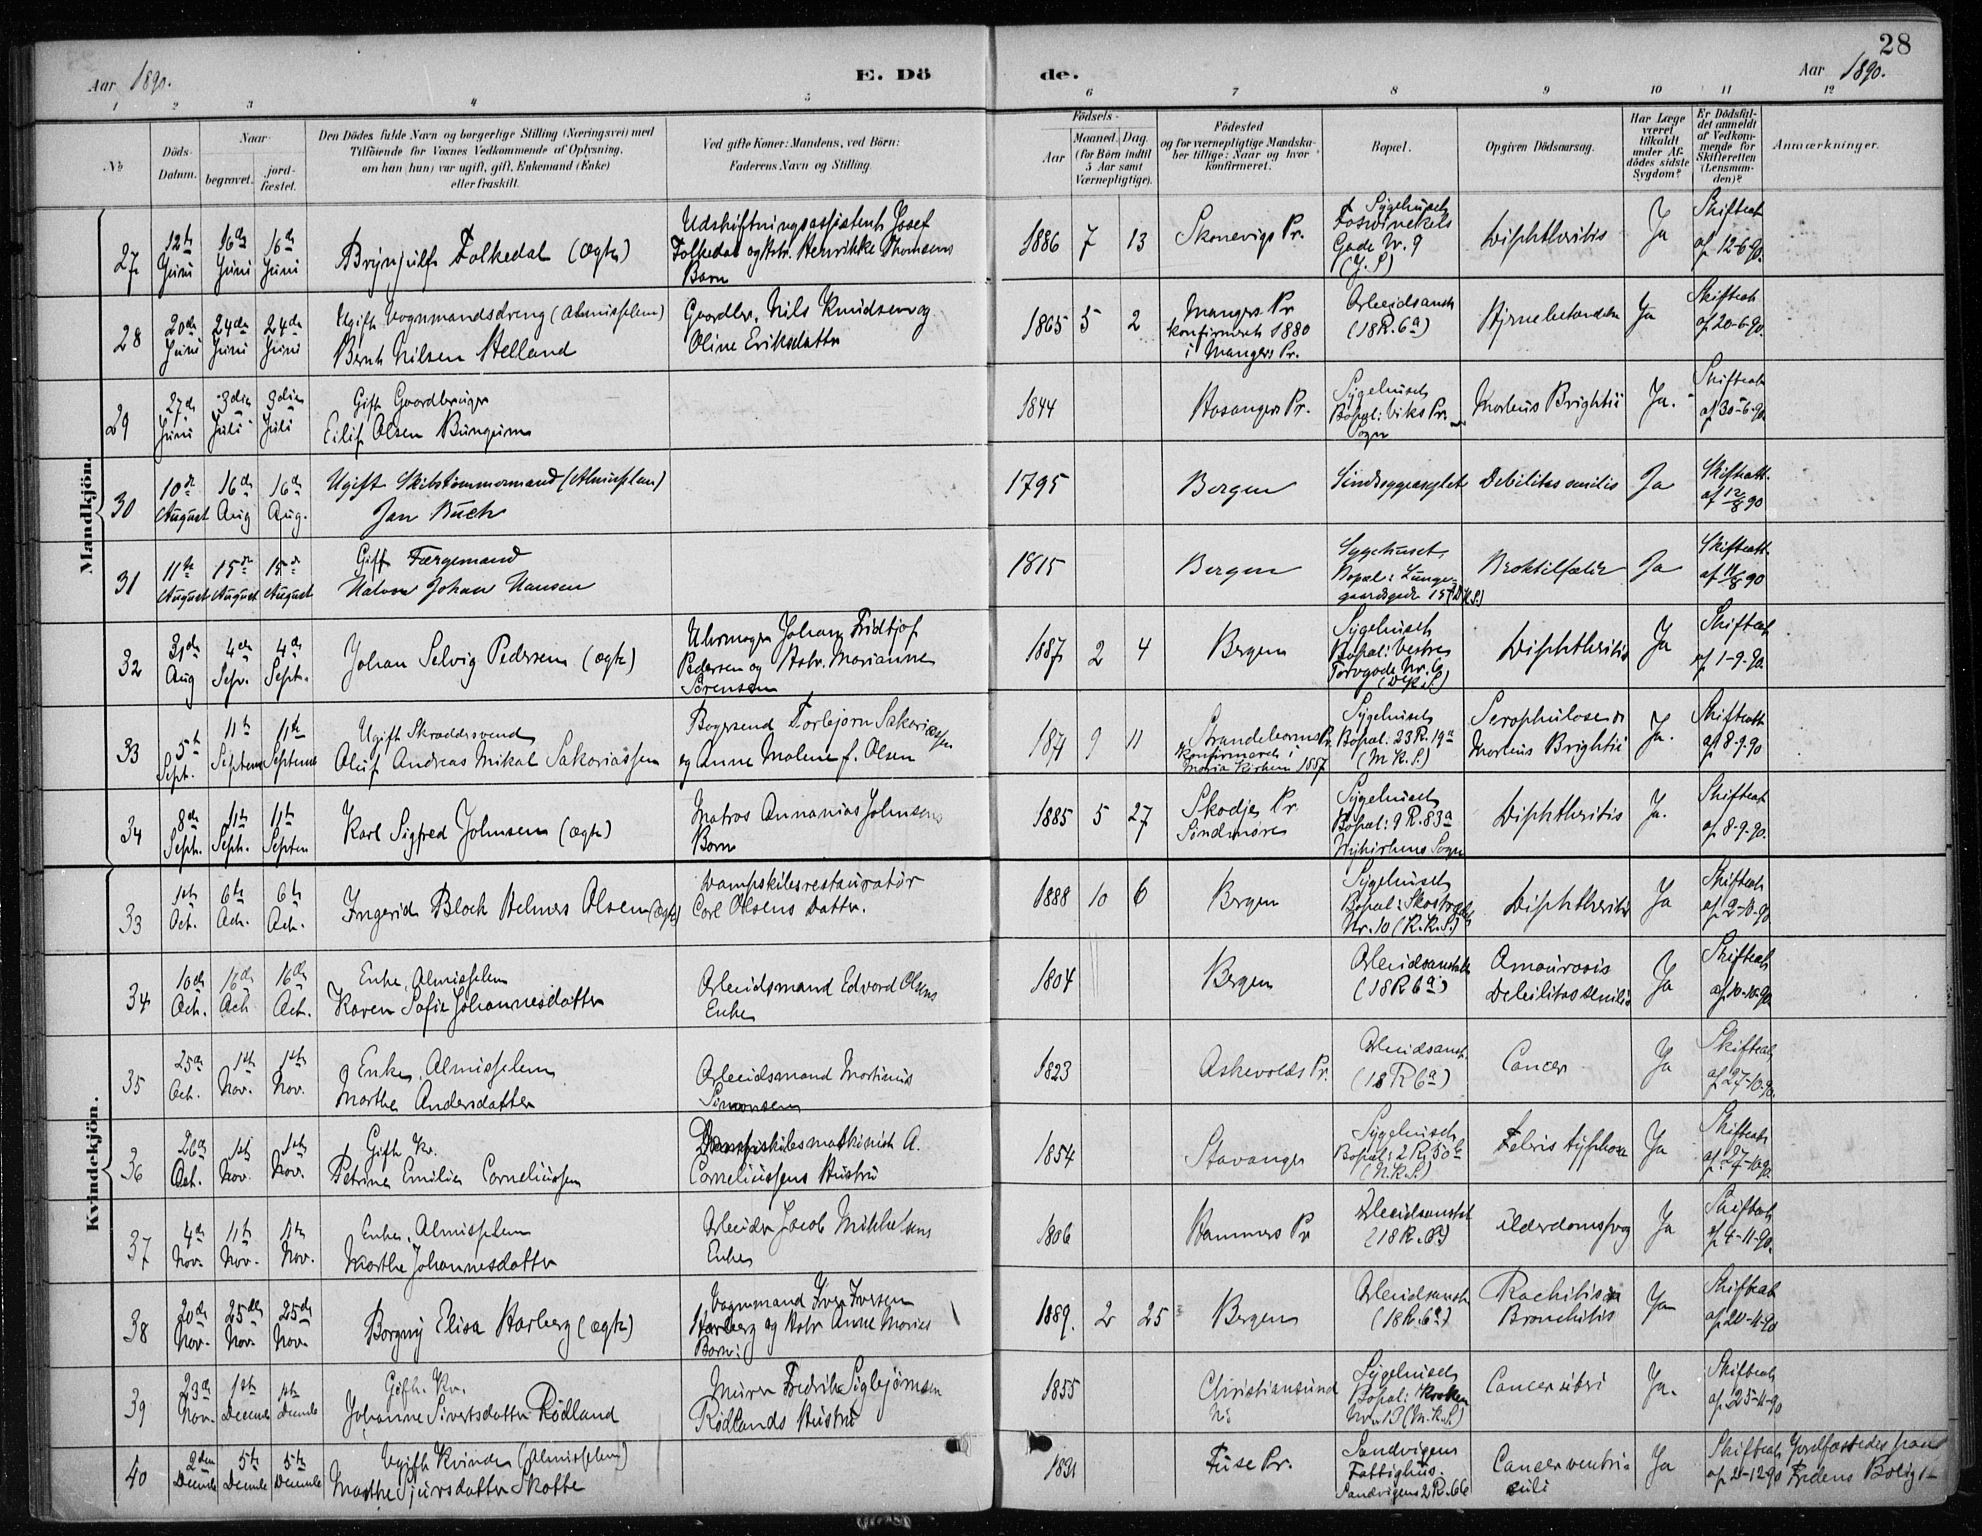 28
Aar 1890.
E. Dö
de.
Aar 1890.
1 2 3 4 5 6 7 8 9 10 11 12
No
Döds-Datum.
Naar
begravet.
jord-fæstet.
Den Dödes fulde Navn og borgerlige Stilling (Næringsvei) med
Tilföiende for Voxnes Vedkommende af Oplysning,
om han (hun) var ugift, gift, Enkemand (Enke)
eller fraskilt.
Ved gifte Koner: Mandens, ved Börn:
Faderens Navn og Stilling.
Födsels-
Aar
Maaned. Dag.
(for Börn indtil
5 Aar samt
Værnepligtige).
Födested
og for værnepligtige Mandska-
ber tillige: Naar og hvor
konfirmeret.
Bopæl.
Opgiven Dödsaarsag.
Har Læge
været
tilkaldt
under Af-
dödes sidste
Sygdom?
Er Dödsfal-
det anmeldt
af Vedkom-
mende for
Skifteretten
(Lensman-
den)?
Anmærkninger.
Mandkjön.
27 12te Juni 16de Juni 16de Juni
Brynjulf Folkedal (ægte)
Udskiftningsassistent Josef
Folkedal og Hstr. Henrikke Thomsens
Barn
1886 7 13 Skonevigs Pr.
Sygehuset
Gade Nr. 9
Diphtheritis Ja Skifteret af 12-6-90.
28 20de Juni 24de Juni 24de Juni
Ugift Vognmandsdreng (Almisselem)
Bernt Nilsen Helland
Gaardbr. Nils Knudsen og
Oline Eriksdatter
1865 5 2 Mangers Pr
konfirmeret 1880
i Mangers Pr.
Arbeidsanst
(18 R. 6a)
Hjernebetændelse Ja Skifteret af 20-6-90.
29 27de Juni 3die Juli 3die Juli
Gift Gaardbruger
Eilif Olsen Bungum
1844 Hosangers Pr.
Sygehuset
Bopæl: Viks Pr.
Sogn
Morbus Brightii Ja. Skifteret af 30-6-90.
30 10de August 16de Aug 16de Aug.
Ugift Skibstømmermand (Almisselem)
Jan Buch
1795 Bergen Sindssygeasylet Debilitas senilis Ja Skifterett. af 12/8 90
31 11te August 15de August 15de August
Gift Færgemand
Johan Hansen
1815 Bergen
Sygehuset
Bopæl: Lunge-
gaardsgade 15 (D.K.S.)
Ja Skifterett. af 11/8 90
32 31de Aug 4de Sepr. 4de Sept.
Johan Selvig Pedersen (ægte)
Uhrmager Johan Fridtjof
Pedersen og Hstr. Marianne
Sörensen
1887 2 4 Bergen
Sygehuset
Bopæl: Vestre
Torvgade Nr. 6
(D.K.S.)
Diphtheritis Ja Skifteret af 1-9-90.
33 5te Sept. 11te Septem 11te Septembe
Ugift Skræddersvend
Oluf Andreas Mikal Sakariassen
Torbjørn Sakariassen
og Anne Malene f. Olsen
187 9 11 Strandebarms Pr.
konfirmeret i
Maria Kirken 1887
Sygehuset
Bopæl: 23 R. 19a
(M.K.S.)
Scrophulose &
Morbus Brightii
Ja. Skifterett af 8-9-90
34 8de Sept. 11te Sept. 11te Septem
Karl Sigfred Johnsen (ægte)
Matros Annanias Johnsens
Barn
1885 5 27 Skodje Pr.
Söndmöre
Sygehuset
Bopæl: 9 R. 83a
Nykirkens Sogn
Diphtheritis Ja. Skifteret af 8-9-90.
Kvindekjön.
33 1ste Oct. 6te Oct. 6te Oct.
Ingerid Block Helmers Olsen (ægte)
Dampskibsrestauratör
Carl Olsens Datter.
1888 10 6 Bergen
Sygehuset
Bopæl:
Nr. 10 (K.K.S.)
Diphtheritis Ja Skifteret af 2-10-90
34 10de Oct. 16de Oct 16de Oct.
Enke, Almisselem
Karen Sofie Johannesdatter
Arbeidsmand Edvard Olsens
Enke
1804 Bergen
Arbeidsanstalt
(18 R 6a)
Amaurosis
Debilitas senilis
Ja Skifteret af 10-10-90.
35 25de Oct. 1ste Nov. 1ste Nov.
Enke, Almisselem
Marthe Andersdatter
Arbeidsmand Martinus
Simonsen
1823 Askevolds Pr.
Arbeidsanst.
(18 R 6a)
Cancer Ja Skifteret af 27-10-90.
36 26de Oct. 1ste Nov. 1ste Nov.
Gift Kv.
Petrine Emilie Corneliussen
Dampskibsmaskinist A.
Corneliussens Hustru
1854 Stavanger
Sygehuset
Bopæl: 2 R. 50b
(N.K.S.)
Febris typhosa Ja Skifteret af 27-10-90.
37 4de Nov. 11te Nov. 11te Nov.
Enke, Almisselem
Marthe Johannesdatter
Arbeider Jacob Mikkelsens
Enke
1806 Hammers Pr
Arbeidsanstalt
(18 R. 6a)
Alderdomssvag Ja Skifteret af 4-11-90.
38 20de Nov. 25de Nov. 25de Nov.
Borgny Elisa Harberg (ægte)
Vognmand Iver Iversen
Harberg og Hstr Anne Maries
Barn:
1889. 2 25 Bergen
Arbeidsanst
(18 R. 6a)
Rachitis &
Bronchitis
Ja Skifteret af 20-11-90
39 23de Nov. 1ste Decembe 1ste Decembe
Gift. Kv.
Johanne Sivertsdatter Rødland
Murer Fredrik Sigbjörnsen
Rødlands Hustru
1855 Christiansund
N:
Sygehuset
Bopæl: Krokken
Nr. 13 (M.K.S.)
Cancer uteri Ja. Skifteret af 25-11-90
40 2den Decembe 5te Decembe 5te Decembe
Ugift Kvinde (Almisselem)
Marthe Sjursdatter Skotte
1831 Fuse Pr.
Sandvigens
Fattighus.
Sandvigens 2 R. 66
Cancer ventri-
culi
Ja Skifteret af 2-12-90
Jordfæstedes paa
Fredens Bolig